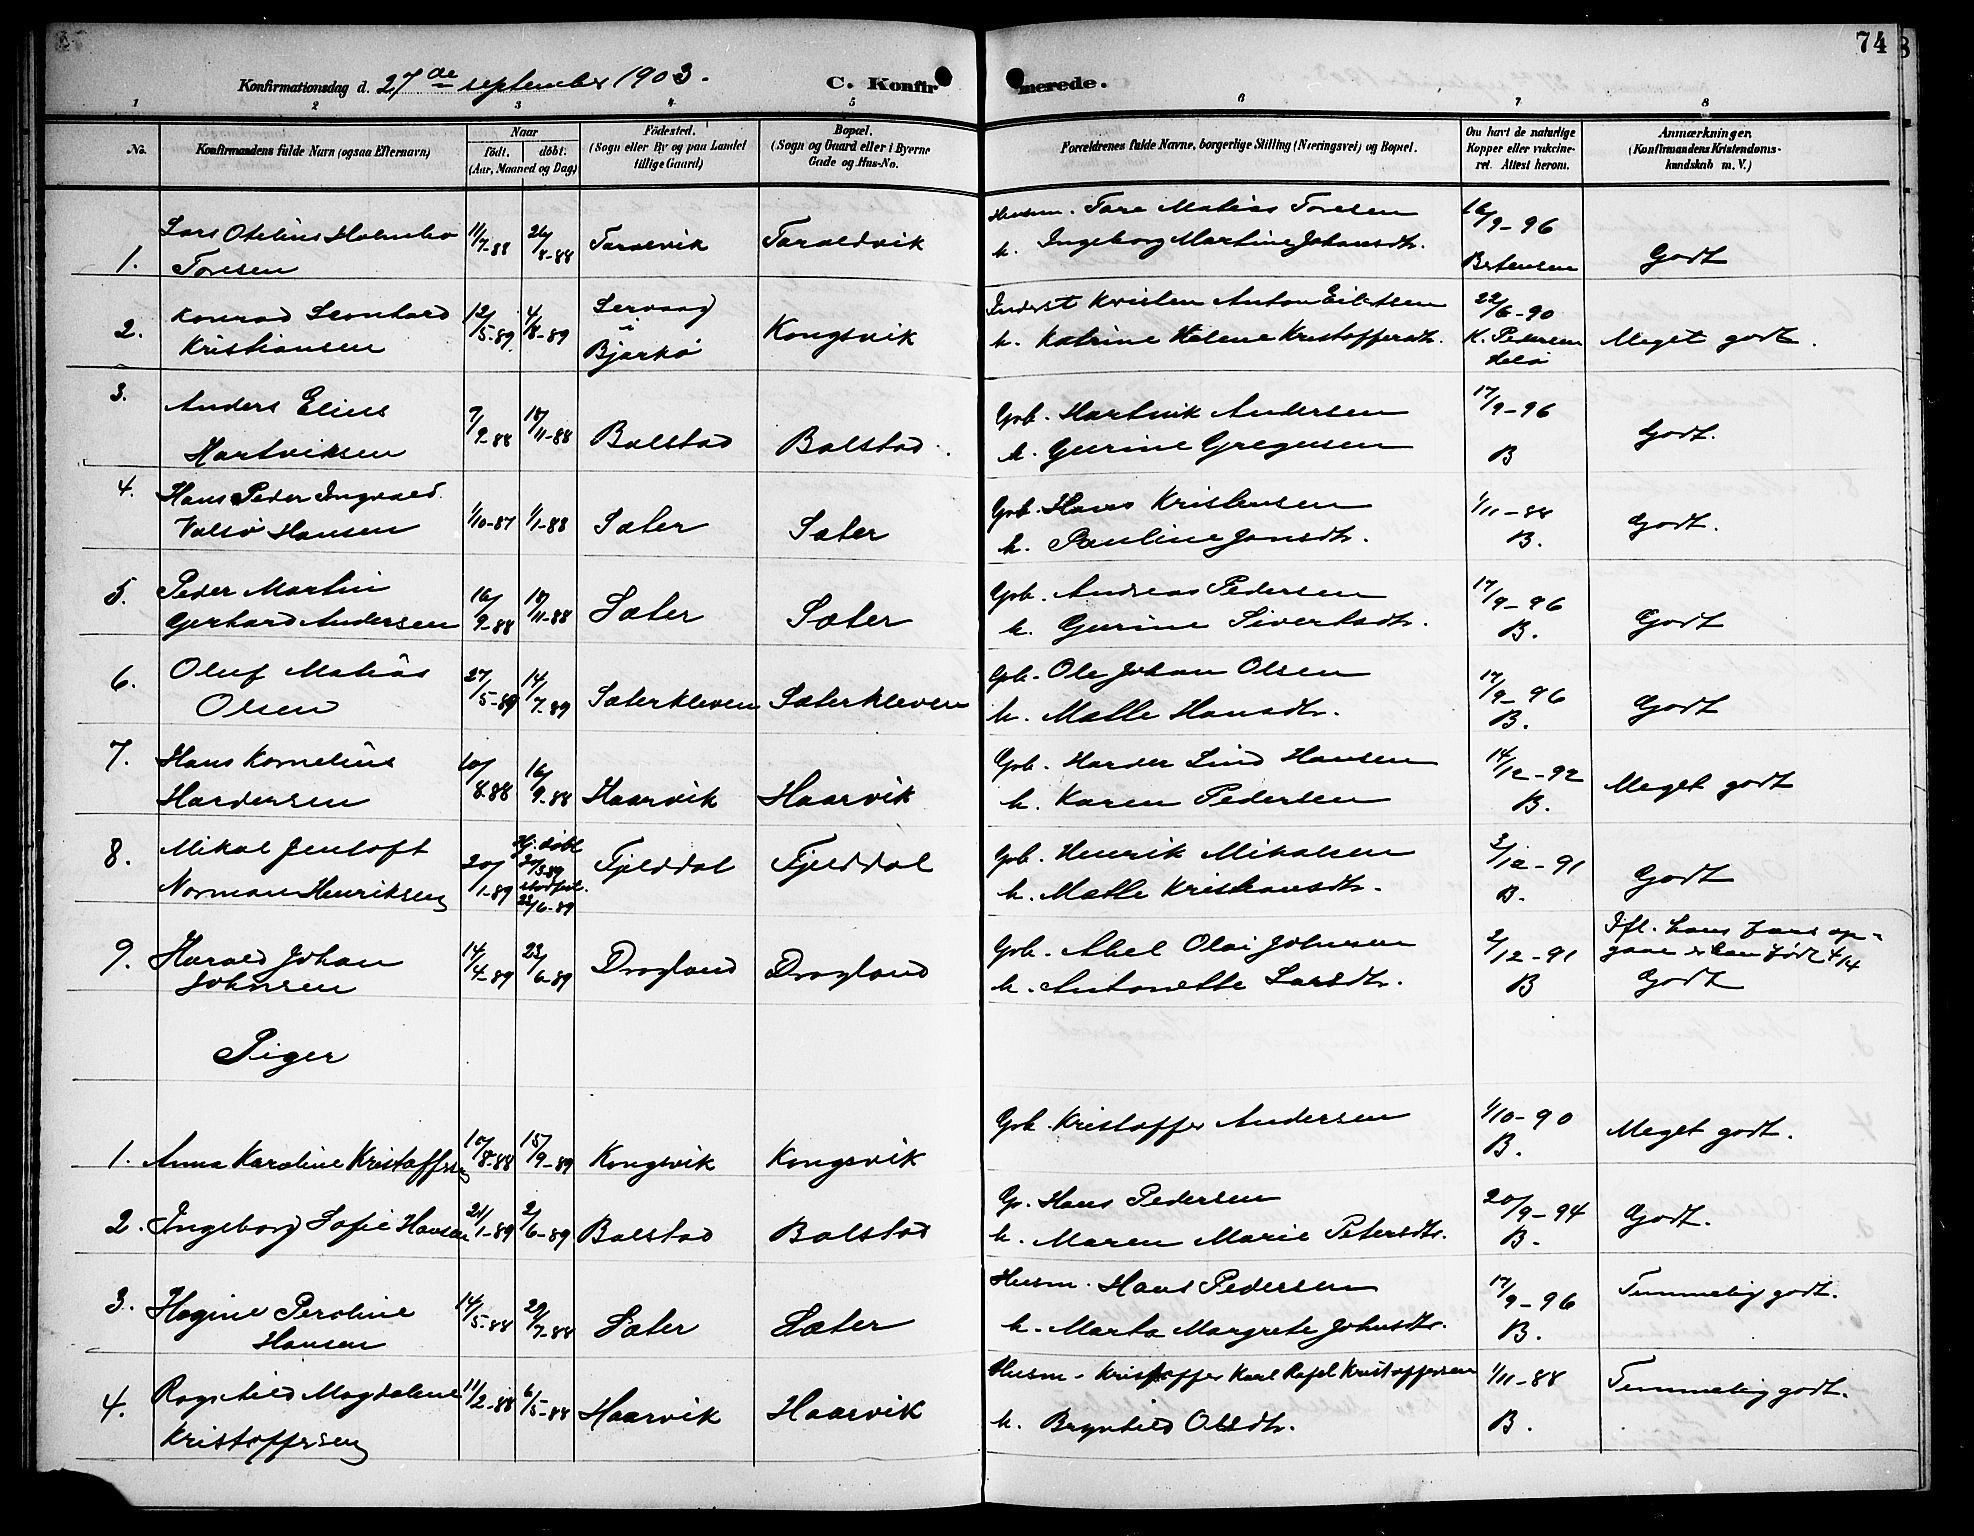 74
Konfirmationsdag d. 27de september 1903.
C. Konfirmerede.
1 2 3 4 5 6 7 8
No.
Konfirmandens fulde Navn (ogsaa Efternavn)
Naar
födt. döbt.
(Aar, Maaned og Dag)
Födested.
(Sogn eller By og paa Landet
tillige Gaard)
Bopæl.
(Sogn og Gaard eller i Byerne
Gade og Hus-No.
Forældrenes fulde Navne, borgerlige Stilling (Næringsvei) og Bopæl.
Om havt de naturlige
Kopper eller vakcine-
ret. Attest herom.
Anmærkninger.
(Konfirmandens Kristendoms-
kundskab m. V.)
1. Lars Otelius Holmbo Toresen 11/7-88 26/8-88 Taraldvik Taraldvik
Husm. Tore Matias Toresen 16/9-96
h. Ingeborg Martine Johansdtr. Bertensen Godt
2. Konrad Leonhard Kristiansen 12/5-89 4/8-89 Lervaag i Bjarkö Kongsvik
Inderst Kristen Anton Eilertsen 22/6-90
h. Katrine Helene Kristoffersdtr. K. Pedersen Meget godt.
3. Anders Elius Hartviksen 9/9-88 18/11-88 Balstad Balstad.
Gbr. Hartvik Andersen 17/9-96
h. Gurine Gregusen B Godt.
4. Hans Peder Ingvald Valsö Hansen 1/10-87 1/1-88 Sæter Sæter
Gbr. Hans Kristensen 1/11-88
h. Pauline Jonsdtr. B. Godt.
5. Peder Martin Gerhard Andersen 16/9-88 18/11-88 Sæter Sæter
Gbr. Andreas Pedersen 17/9-96
h. Gurine Sivertsdtr. B. Godt
6. Oluf Matias Olsen 27/5-89 14/7-89 Sæterkleven Sæterkleven
Gbr. Ole Johan Olsen 17/9-96
h. Mette Hansdtr. B. Godt
7. Hans Kornelius Hardersen 10/8-88 16/9-88 Haarvik Haarvik
Gbr. Harder Lind Hansen 14/12-92
h. Karen Pedersen B. Meget godt
8. Mikal Jentoft Norman Henriksen 20/1-89 Hj. döbt 20/3-89 stadfæst. 23/6-89 Fjelddal Fjelddal
Gbr. Henrik Mikalsen 2/12-91
h. Mette Kristiansdtr. B. Godt
9. Harald Johan Johnsen 14/4-89 23/6-89 Dragland Dragland
Gbr. Abel Olai Johnsen 2/12-91 Ifl. hans fars op-
gave er han født 4/14
h. Antonette Larsdtr. B Godt
Piger
1. Anna Karoline Kristoffersen 10/8-88 15/9-89 Kongsvik Kongsvik
Gbr. Kristoffer Andersen 1/10-90
B. Meget godt.
2. Ingeborg Sofie Hansen 21/1-89 2/6-89 Balstad Balstad
Gbr. Hans Pedersen 20/9-94
h. Maren Marie Petersdtr. B. Godt.
3. Hagine Peroline Hansen 14/5-88 29/7-88 Sæter Sæter
Husm. Hans Pedersen 17/9-96
h. Marta Margrete Johnsdtr. B. Temmelig godt.
4. Ragnhild Magdalene Kristoffersen 11/2-88 6/5-88 Haarvik Haarvik
Husm. Kristoffer Karl Rafel Kristoffersen 1/11-88
h. Brynhild Olsdtr. B. Temmelig godt.